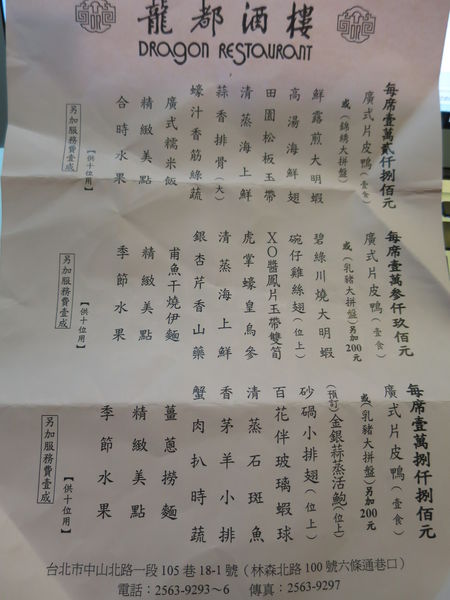 龍都酒樓
DRagon RESTAURANT
每席壹萬貳仟捌佰元
廣式片皮鴨(壹食)
或(錦綉大拼盤)
鮮露煎大明蝦
高湯海鮮翅
田園松板玉帶
清蒸海上鮮
蒜香排骨(大)
蠔汁香筋綠蔬
廣式糯米飯
精緻美點
合時水果
【供十位用】
另加服務費壹成
每席壹萬參仟玖佰元
廣式片皮鴨(壹食)
或(乳豬大拼盤)另加200元
碧綠川燒大明蝦
碗仔雞絲翅(位上)
XO醬鳳片玉帶雙筍
虎掌蠔皇烏參
清蒸海上鮮
銀杏芹香山藥
甫魚干燒伊麵
精緻美點
季節水果
【供十位用】
另加服務費壹成
每席壹萬捌仟捌佰元
廣式片皮鴨(壹食)
或(乳豬大拼盤)另加200元
(預訂)金銀蒜蒸活鮑(位上)
砂鍋小排翅(位上)
百花伴玻璃蝦球
清蒸石斑魚
香茅羊小排
蟹肉扒時蔬
薑蔥撈麵
精緻美點
季節水果
【供十位用】
另加服務費壹成
台北市中山北路一段105巷18-1號(林森北路100號六條通巷口)
電話:2563-9293~6 傳真:2563-9297